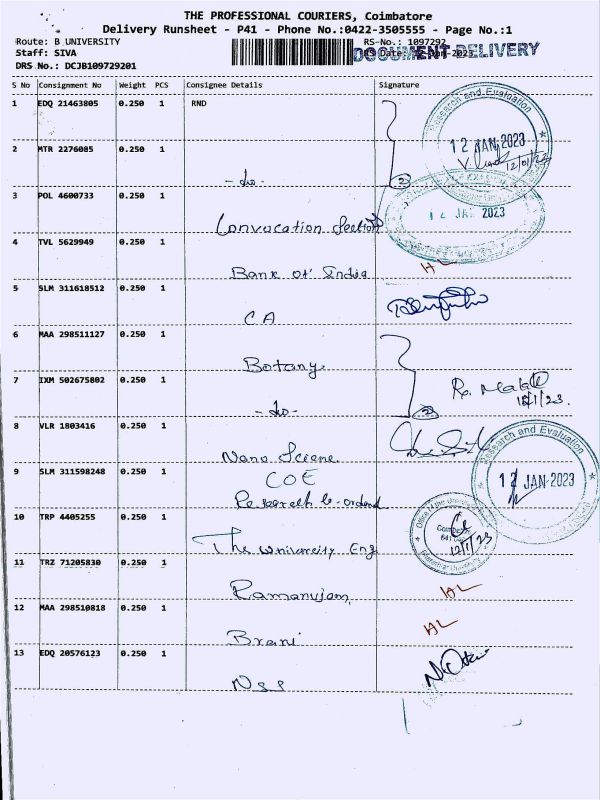 THE PROFESSIONAL COURIERS, Coimbatore
Delivery Runsheet - P41 - Phone No.:0422-3505555 - Page No.:1
Route: B UNIVERSITY RS-No.: 1097292
Staff: SIVA RS Date: 12-Jan-2023
DOCUMENT DELIVERY
DRS No.: DCJB109729201
S No Consignment No Weight PCS Consignee Details Signature
1 EDQ 21463805 0.250 1 RND
Research and Evaluation
12 JAN 2023
12/01/23
2 MTR 2276085 0.250 1
-do-
3 POL 4600733 0.250 1
12 JAN 2023
Convocation Section
4 TVL 5629949 0.250 1
Bank of India
5 SLM 311618512 0.250 1
CA
6 MAA 298511127 0.250 1
Botany
7 IXM 502675802 0.250 1
-do-
8 VLR 1803416 0.250 1
Research and Evaluation
12 JAN 2023
Nano Sciene
9 SLM 311598248 0.250 1
COE
10 TRP 4405255 0.250 1
12/1/23
The University Eng
11 TRZ 71205830 0.250 1
Ramanujam
12 MAA 298510818 0.250 1
13 EDQ 20576123 0.250 1
Nss